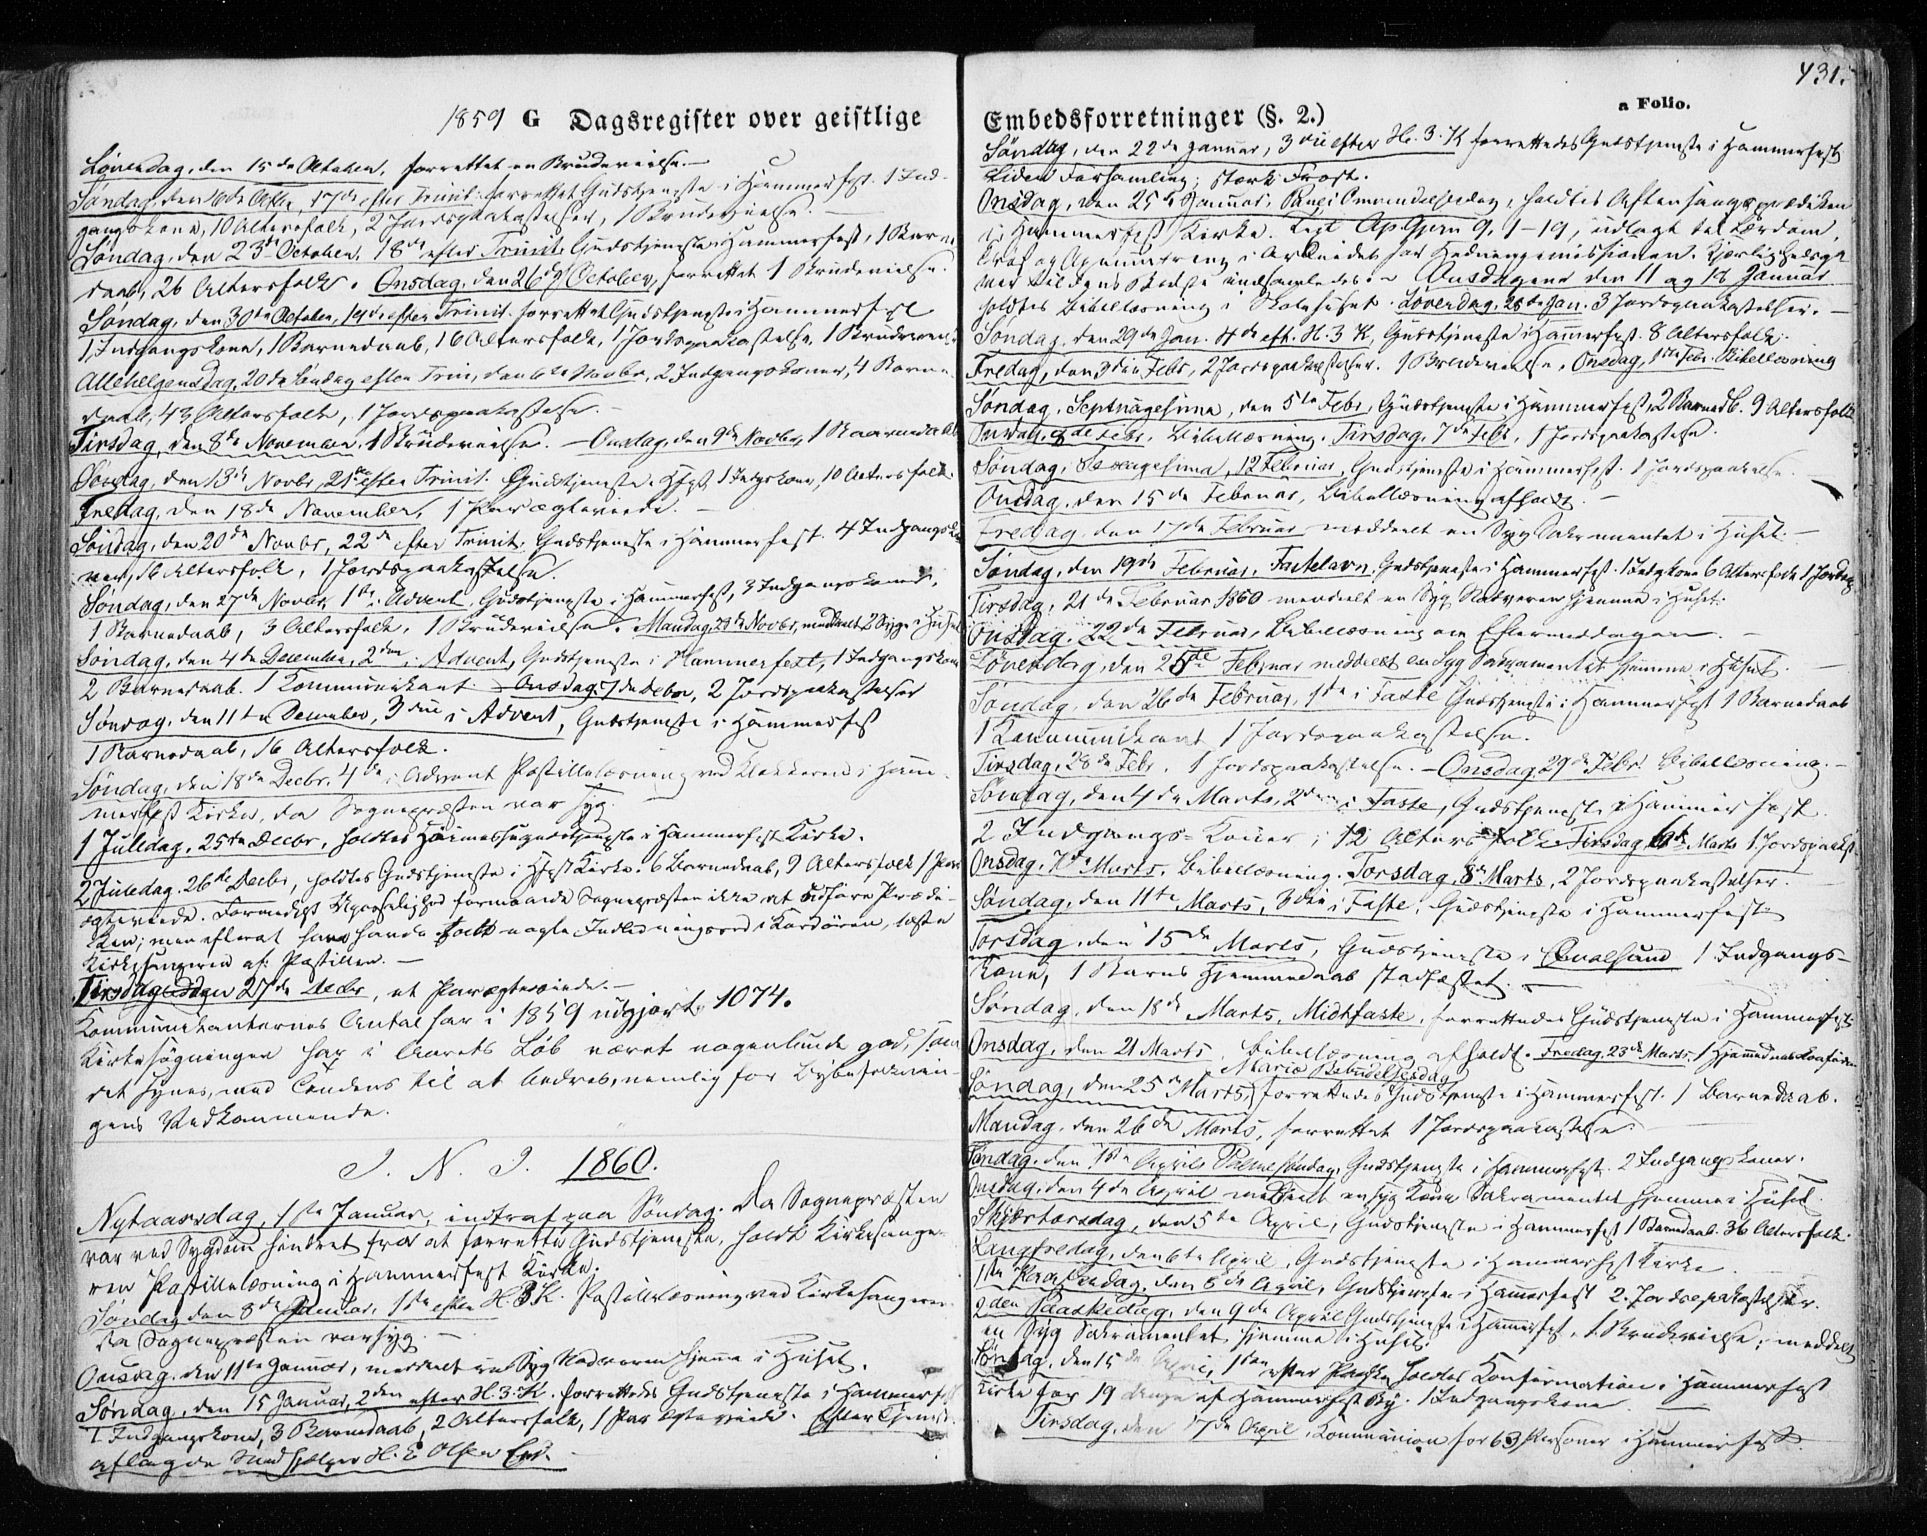 1859 G Dagsregister over geistlige
Løverdag, den 15de October, forrettet en Brudevielse. —
Søndag, den 16de Octbr, 17de efter Trinit. forrettet Gudstjeneste i Hammerfest. 1 Ind-
gangskone, 10 Altersfolk, 2 Jordspaakastelser, 1 Brudevielse. —
Søndag, den 23de October, 18de efter Trinit. Gudstjeneste i Hammerfest, 1 Barne-
daab, 26 Altersfolk. Onsdag, den 26de October, forrettet 1 Brudevielse.
Søndag, den 30te October, 19de efter Trinit. forrettet Gudstjeneste i Hammerfest
1 Indgangskone, 1 Barnedaab, 16 Altersfolk, 1 Jordspaakastelse, 1 Brudeviel
Allehelgensdag, 20de Søndag efter Trin, den 6te Novbr, 2 Indgangskoner, 4 Barne-
daab, 43 Altersfolk, 1 Jordspaakastelse. —
Tirsdag, den 8de November, 1 Brudevielse. — Onsdag, den 9de Novbr, 1 Baarnedaab
Søndag, den 13de Novbr, 21de efter Trinit. Gudstjeneste i Hfest, 1 Indgskone, 10 Altersfolk.
Fredag, den 18de November, 1 Par ægteviede. —
Søndag, den 20de Novbr, 22de efter Trinit. Gudstjeneste i Hammerfest. 4 Indgangsko-
ner, 16 Altersfolk, 1 Jordspaakastelse.
Søndag, den 27de Novbr, 1te i Advent, Gudstjeneste i Hammerfest, 3 Indgangskoner,
1 Barnedaab, 3 Altersfolk, 1 Brudevielse. Mandag 28de Novbr, meddeelt 2 Syge i Huset
Søndag, den 4de December, 2den i Advent, Gudstjeneste i Hammerfest, 1 Indgangskone
2 Barnedaab. 1 Kommunikant. — Onsdag 7de Decbr, 2 Jordspaakastelser
Søndag, den 11te December, 3die i Advent, Gudstjeneste i Hammerfest
1 Barnedaab, 16 Altersfolk.
Søndag, den 18de Decbr, 4de i Advent Postillelæsning ved Klokkeren i Ham-
merfest Kirke, da Sognepræsten var syg.
1 Juledag, 25de Decbr, holdtes Høimessegudstjeneste i Hammerfest Kirke.
2 Juledag 26de Decbr, holdtes Gudstjeneste i Hfest Kirke. 6 Barnedaab, 9 Altersfolk 1 Par
ægteviede. Formedelst Upasselighed formaaede Sognepræsten ikke at udføre Prædi-
ken; men efterat have holdt nogle Indledningsord i Kordøren, læste
Kirkesangeren af Postillen. —
Tirsdag den 27de Decbr, et Par ægteviede. —
Kommunikanternes Antal har i 1859 udgjort 1074.
Kirkesøgningen har i Aarets Løb været nogenlunde god, som
det synes, med Tendens til at bedres, nemlig for Bybefolknin-
gens Vedkommende.
I. N. I. 1860.
Nytaarsdag, 1ste Januar, indtraf paa Søndag. Da Sognepræsten
var ved Sygdom hindret fra at forrette Gudstjeneste, holdt Kirkesange-
ren Postillelæsning i Hammerfest Kirke.
Søndag den 8de Januar, 1ste efter H. 3 K. Postillelæsning ved Kirkesangeren
da Sognepræsten var syg. —
Onsdag, den 11te Januar, meddeelt en Syg Nadveren hjemme i Huset.
Søndag, den 15 Januar, 2den efter H. 3. K. forrettedes Gudstjeneste i Hammerfest
1 Indgangskone, 3 Barnedaab, 2 Altersfolk, 1 Par ægteviede. Efter Tjenest.
aflagde H. Olsen Eed.
431.
Embedsforretninger (§. 2.)
a Folio.
Søndag, den 22de Januar, 3die efter H. 3. K forrettedes Gudstjeneste i Hammerfest
Liden Forsamling; stærk Frost.
Onsdag, den 25de Januar, Pauli Omvendelsesdag, holdtes Aftensangsprædiken
i Hammerfest Kirke. Text Ap Gjern 9, 1–19, udlagt til Lærdom,
og Opmuntring i Arbeidet for Hedningemissionen.
Onsdagene den 11 og 18 Januar
holdtes Bibellæsning i Skolehuset. Løverdag, 28de Jan. 3 Jordspaakastelser. —
Søndag, den 29de Jan. 4de eft. H. 3 K, Gudstjeneste i Hamerfest. 8 Altersfolk.
Fredag, den 3die Febr, 2 Jordspaakastelser. 1 Brudevielse. Onsdag, 1ste Febr. Bibellæsning
Søndag, Septuagesima, den 5te Febr, Gudstjeneste i Hammerfest, 2 Barned. 9 Altersfolk
Onsdag, 8de Febr. Bibellæsning. Tirsdag, 7de Febr, 1 Jordspaakastelse.
Søndag, Sexagesima, 12 Februar, Gudstjeneste i Hammerfest. 1 Jordspaakelse.
Onsdag, den 15de Februar, Bibellæsning afholdt. —
Fredag den 17de Februar meddeelt en Syg Sakramentet i Huset. —
Søndag, den 19de Februar, Fastelavn, Gudstjeneste i Hammerfest. 1 Indgkone 6 Altersfolk 1 Jordsp
Tirsdag, 21de Februar 1860 meddeelt en Syg Nadveren hjemme i Huset.
Onsdag, 22de Februar, Bibellæsning om Eftermiddagen. —
Løverdag, den 25de Februar meddeelt en Syg Sakramentet hjemme i Huset. —
Søndag, den 26de Februar, 1ste i Faste Gudstjeneste i Hammerfest 1 Barnedaab
1 Kommunikant 1 Jordspaakastelse.
Tirsdag, 28de Febr. 1 Jordspaakastelse. — Onsdag 29de Febr. Bibellæsning. —
Søndag, den 4de Marts, 2den i Faste, Gudstjeneste i Hammerfest.
2 Indgangs-Koner, 12 Altersfolk. Tirsdag 6te Marts 1 Jordspaakast
Onsdag, 7de Marts, Bibellæsning. Torsdag, 8de Marts, 2 Jordspaakastelser.
Søndag, den 11te Marts, 3die i Faste, Gudstjeneste i Hammerfest
Torsdag, den 15de Marts, Gudstjeneste i Qvalsund 1 Indgangs-
kone, 1 Barns Hjemmedaab stadfæstet. —
Søndag, den 18de Marts, Midtfaste, forrettedes Gudstjeneste i Hammerfest
Onsdag, den 21 Marts, Bibellæsning afholdt. Fredag 23de Marts. 1
Mariæ Bebudelsesdag
Søndag, den 25de Marts, forrettedes Gudstjeneste i Hammerfest. 1 Barnedaab.
Mandag, den 26de Marts, forrettet 1 Jordspaakastelse.
Søndag, den 1ste Aprils Palmesøndag, Gudstjeneste i Hammerfest. 2 Indgangskoner.
Onsdag, den 4de April meddeelt en syg Kone Sakramentet hjemme i Huset.
Skjærtorsdag, den 5te April, Gudstjeneste i Hammerfest 1 Barnedaab. 36 Altersfolk.
Langfredag, den 6te April, Gudstjeneste i Hammerfest Kirke.
1ste Paaskedag, den 8de April, Gudstjeneste i Hamerfest 2. Jordspaakastelser.
2den Paaskedag, den 9de April Gudstjeneste i Hamerfest, 1 Brudevielse; meddelt
en Syg Sakramentet hjemme i Huset.
Søndag, den 15de April, 1ste efter Paaske holdtes Konfirmation i Hammerfest
Kirke for 19 Unge af Hammerfest By. 1 Indgangskone.
Tirsdag, den 17de April, Kommunion for 63 Personer i Hammerfest.